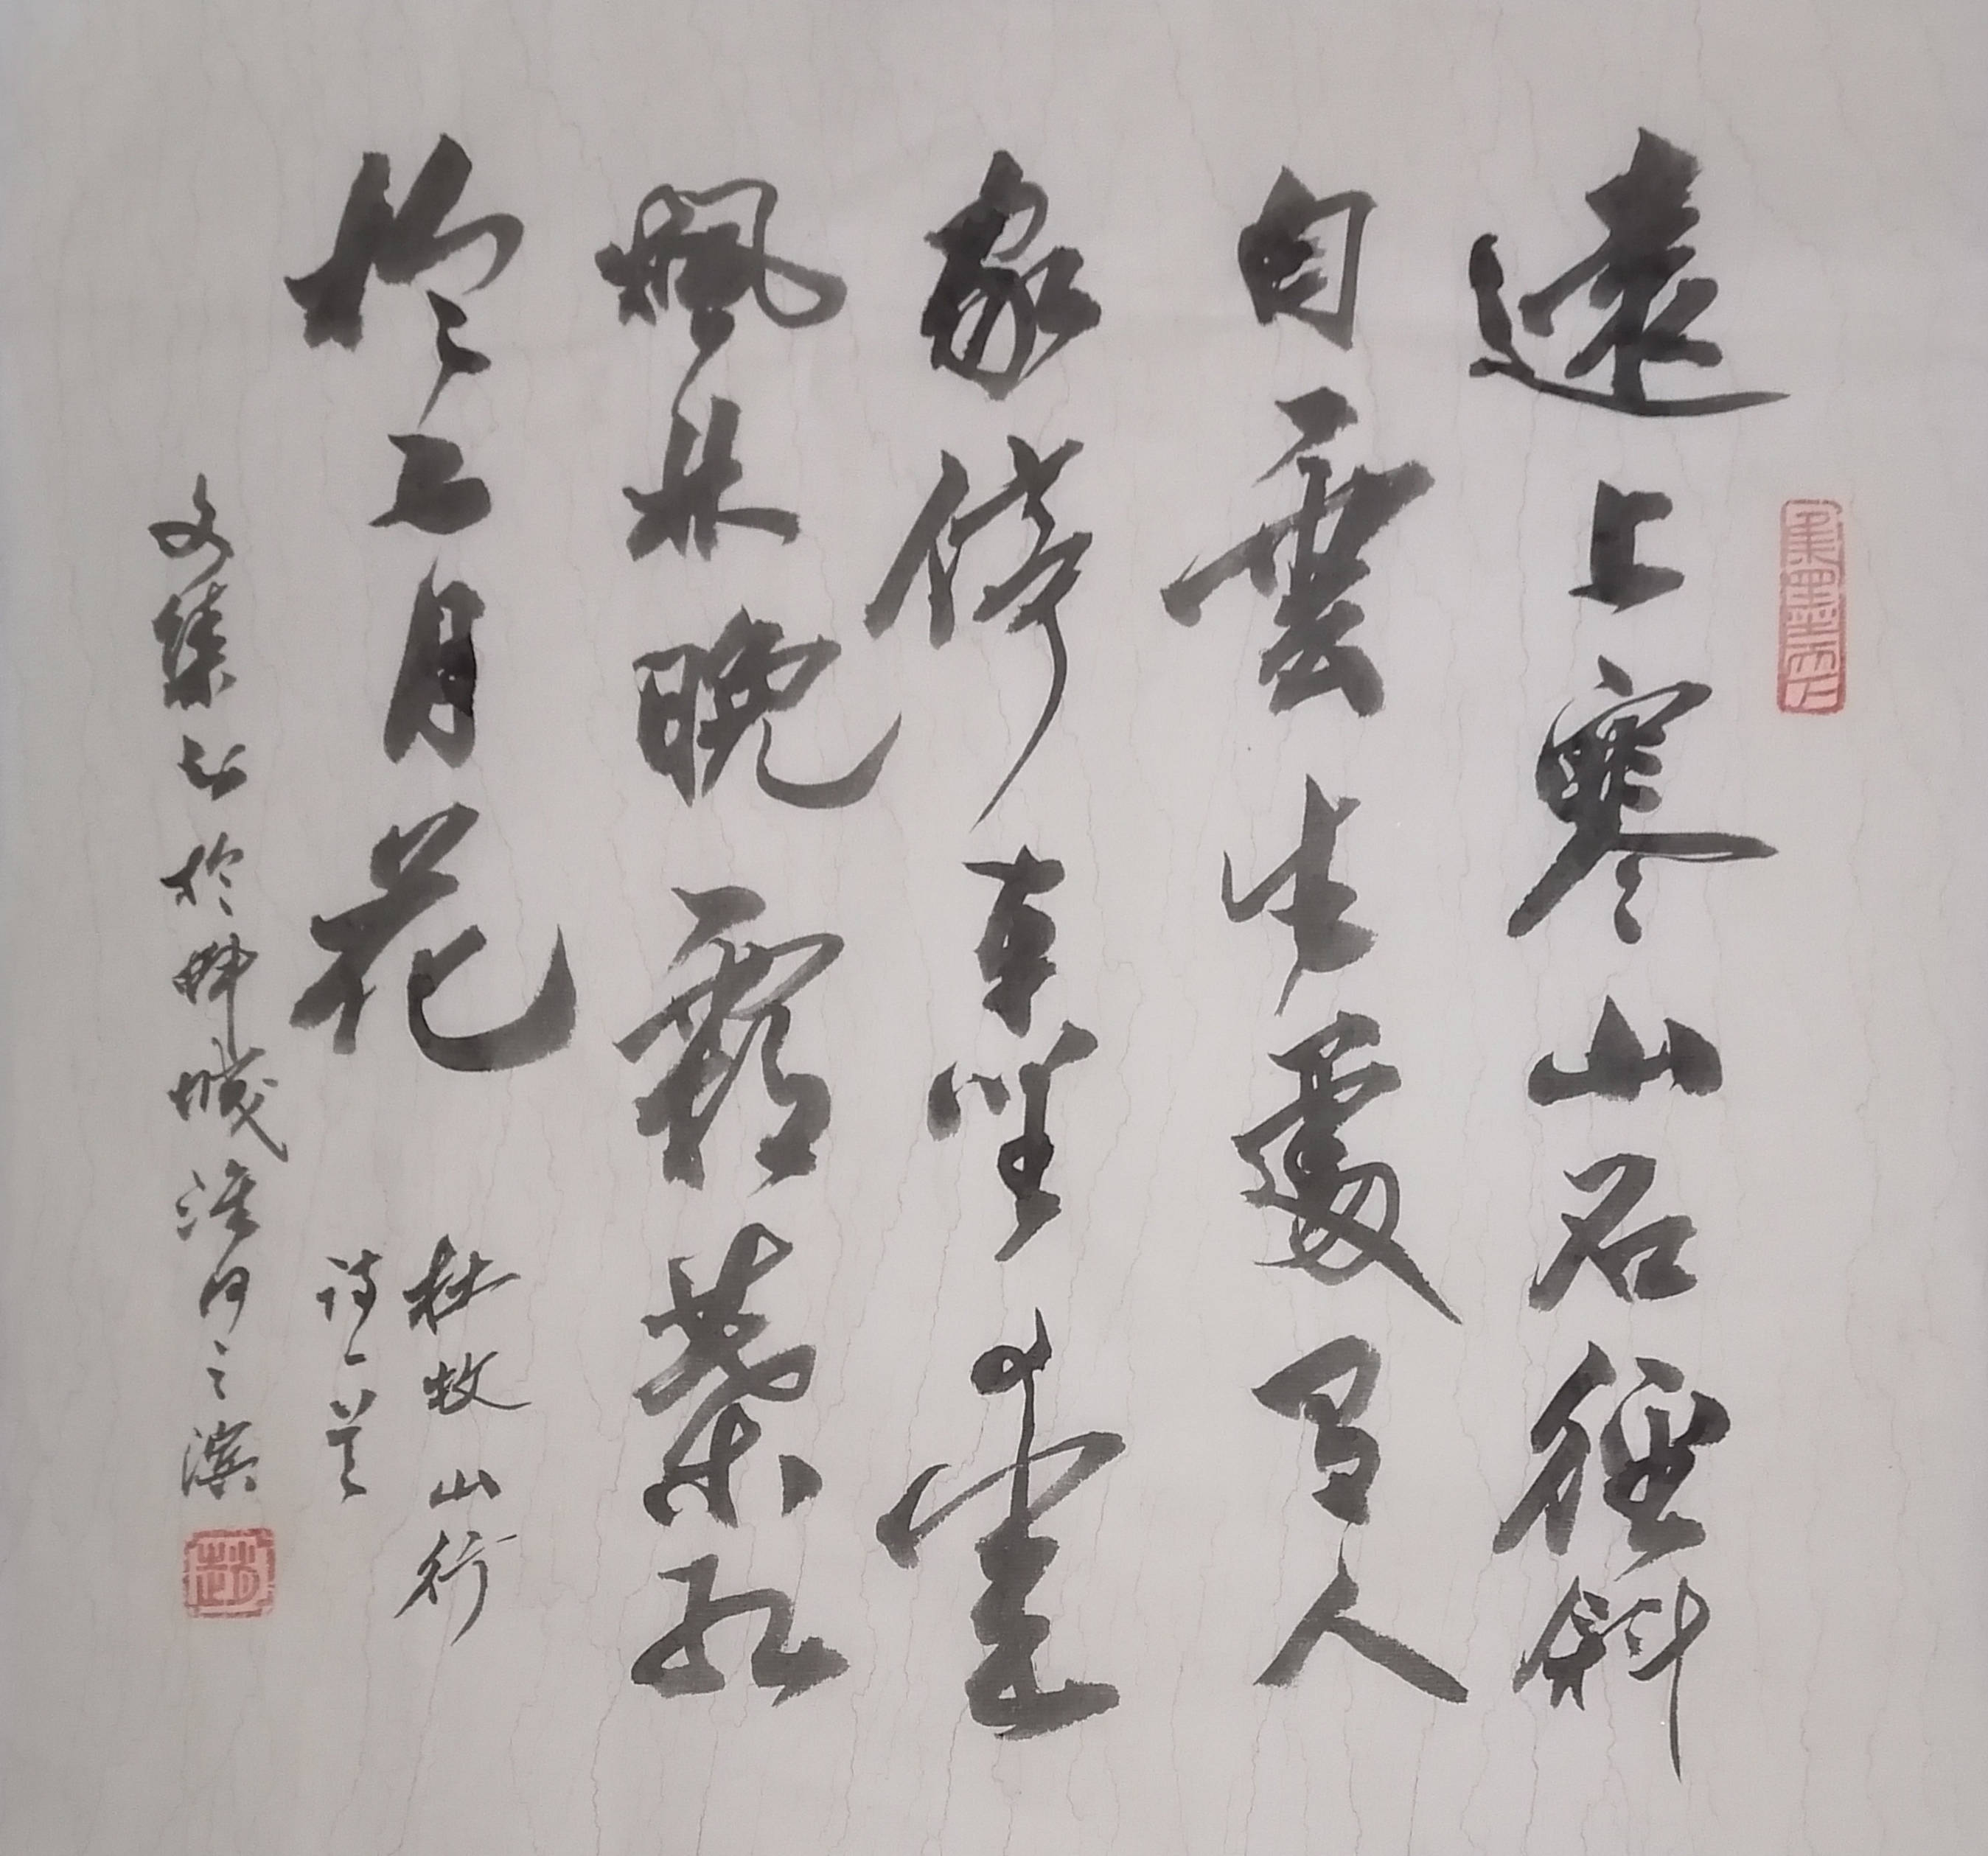 遠上寒山石徑斜
白雲生處有人
家停車坐愛
楓林晚霜葉紅
於二月花
杜牧山行
诗一首
文集书於蚌城淮河之滨
趙